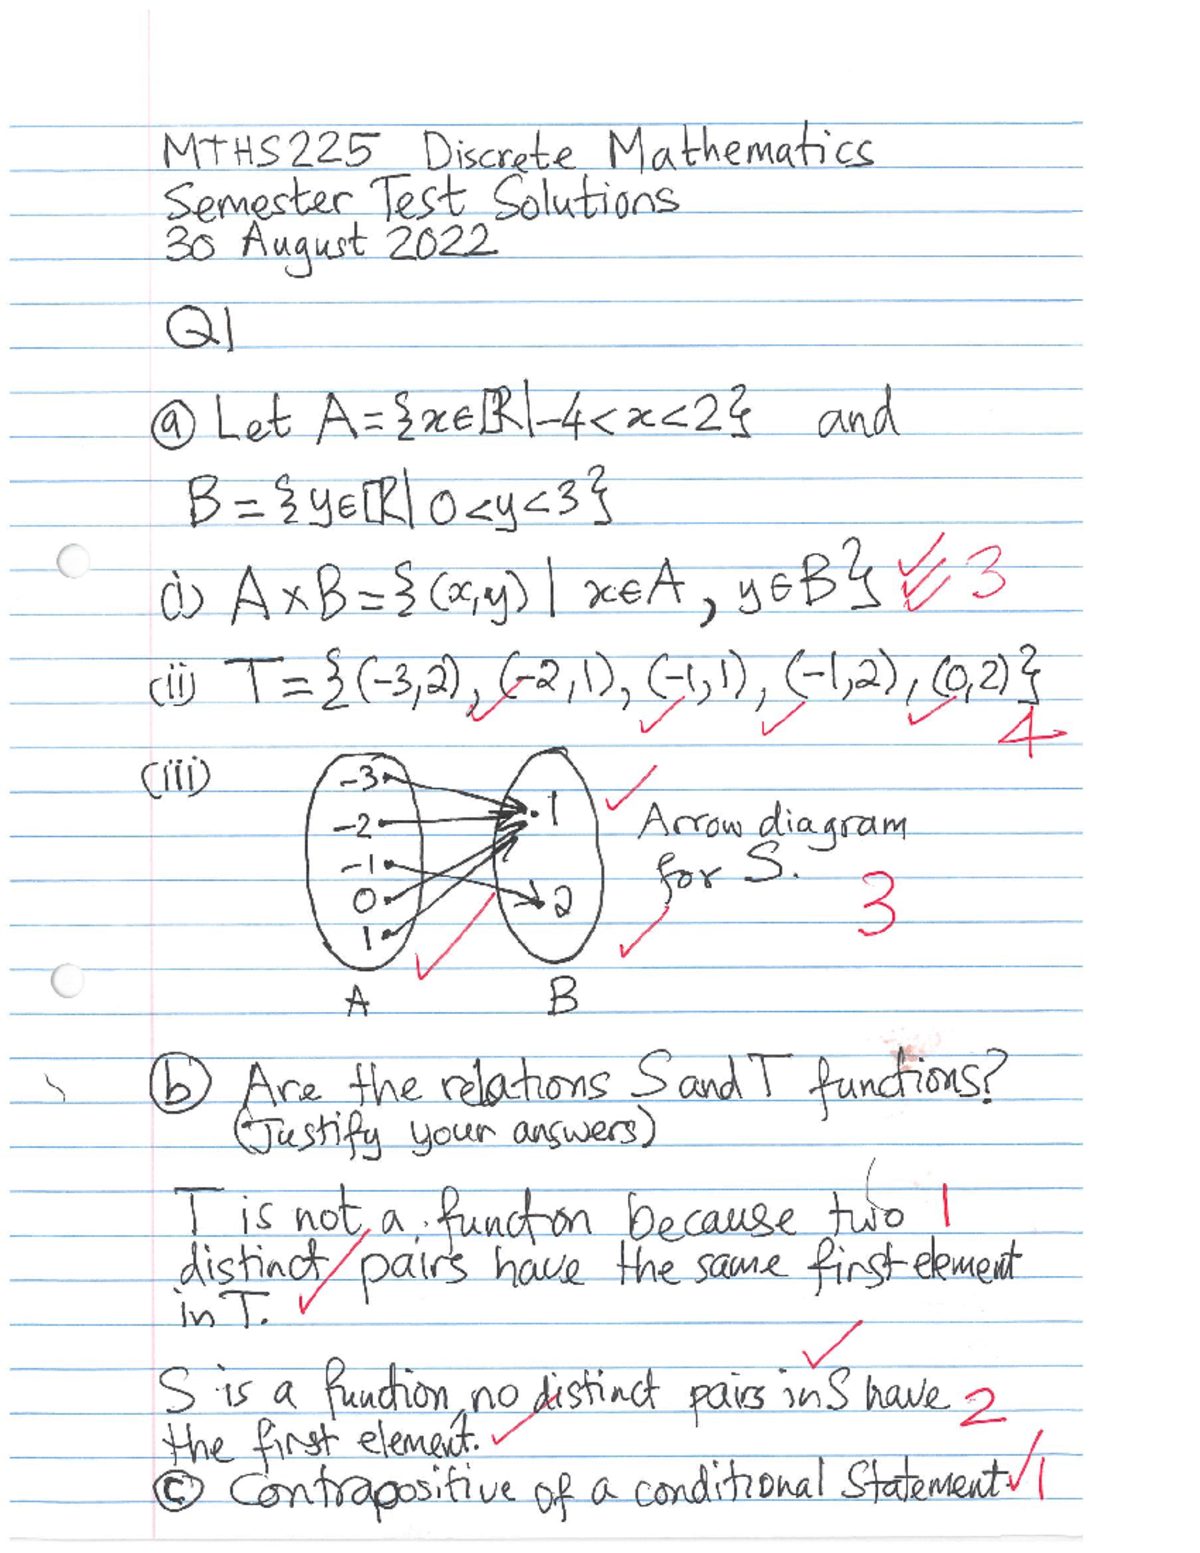 MTHS225 Discrete Mathematics
Semester Test Solutions
30 August 2022
Q1
ⓐ Let A={x∈ℝ|-4<x<2} and
B={y∈ℝ|0<y<3}
(i) A×B={(x,y)| x∈A, y∈B} 3
(ii) T={(-3,2),(-2,1),(-1,1),(-1,2),(0,2)}
4
(iii)
-3
-2
-1
0
1
1
2
Arrow diagram
for S.
3
A B
ⓑ Are the relations S and T functions?
(Justify your answers)
T is not a function because two 1
distinct pairs have the same first element
in T.
S is a function, no distinct pairs in S have 2
the first element.
ⓒ Contrapositive of a conditional Statement 1